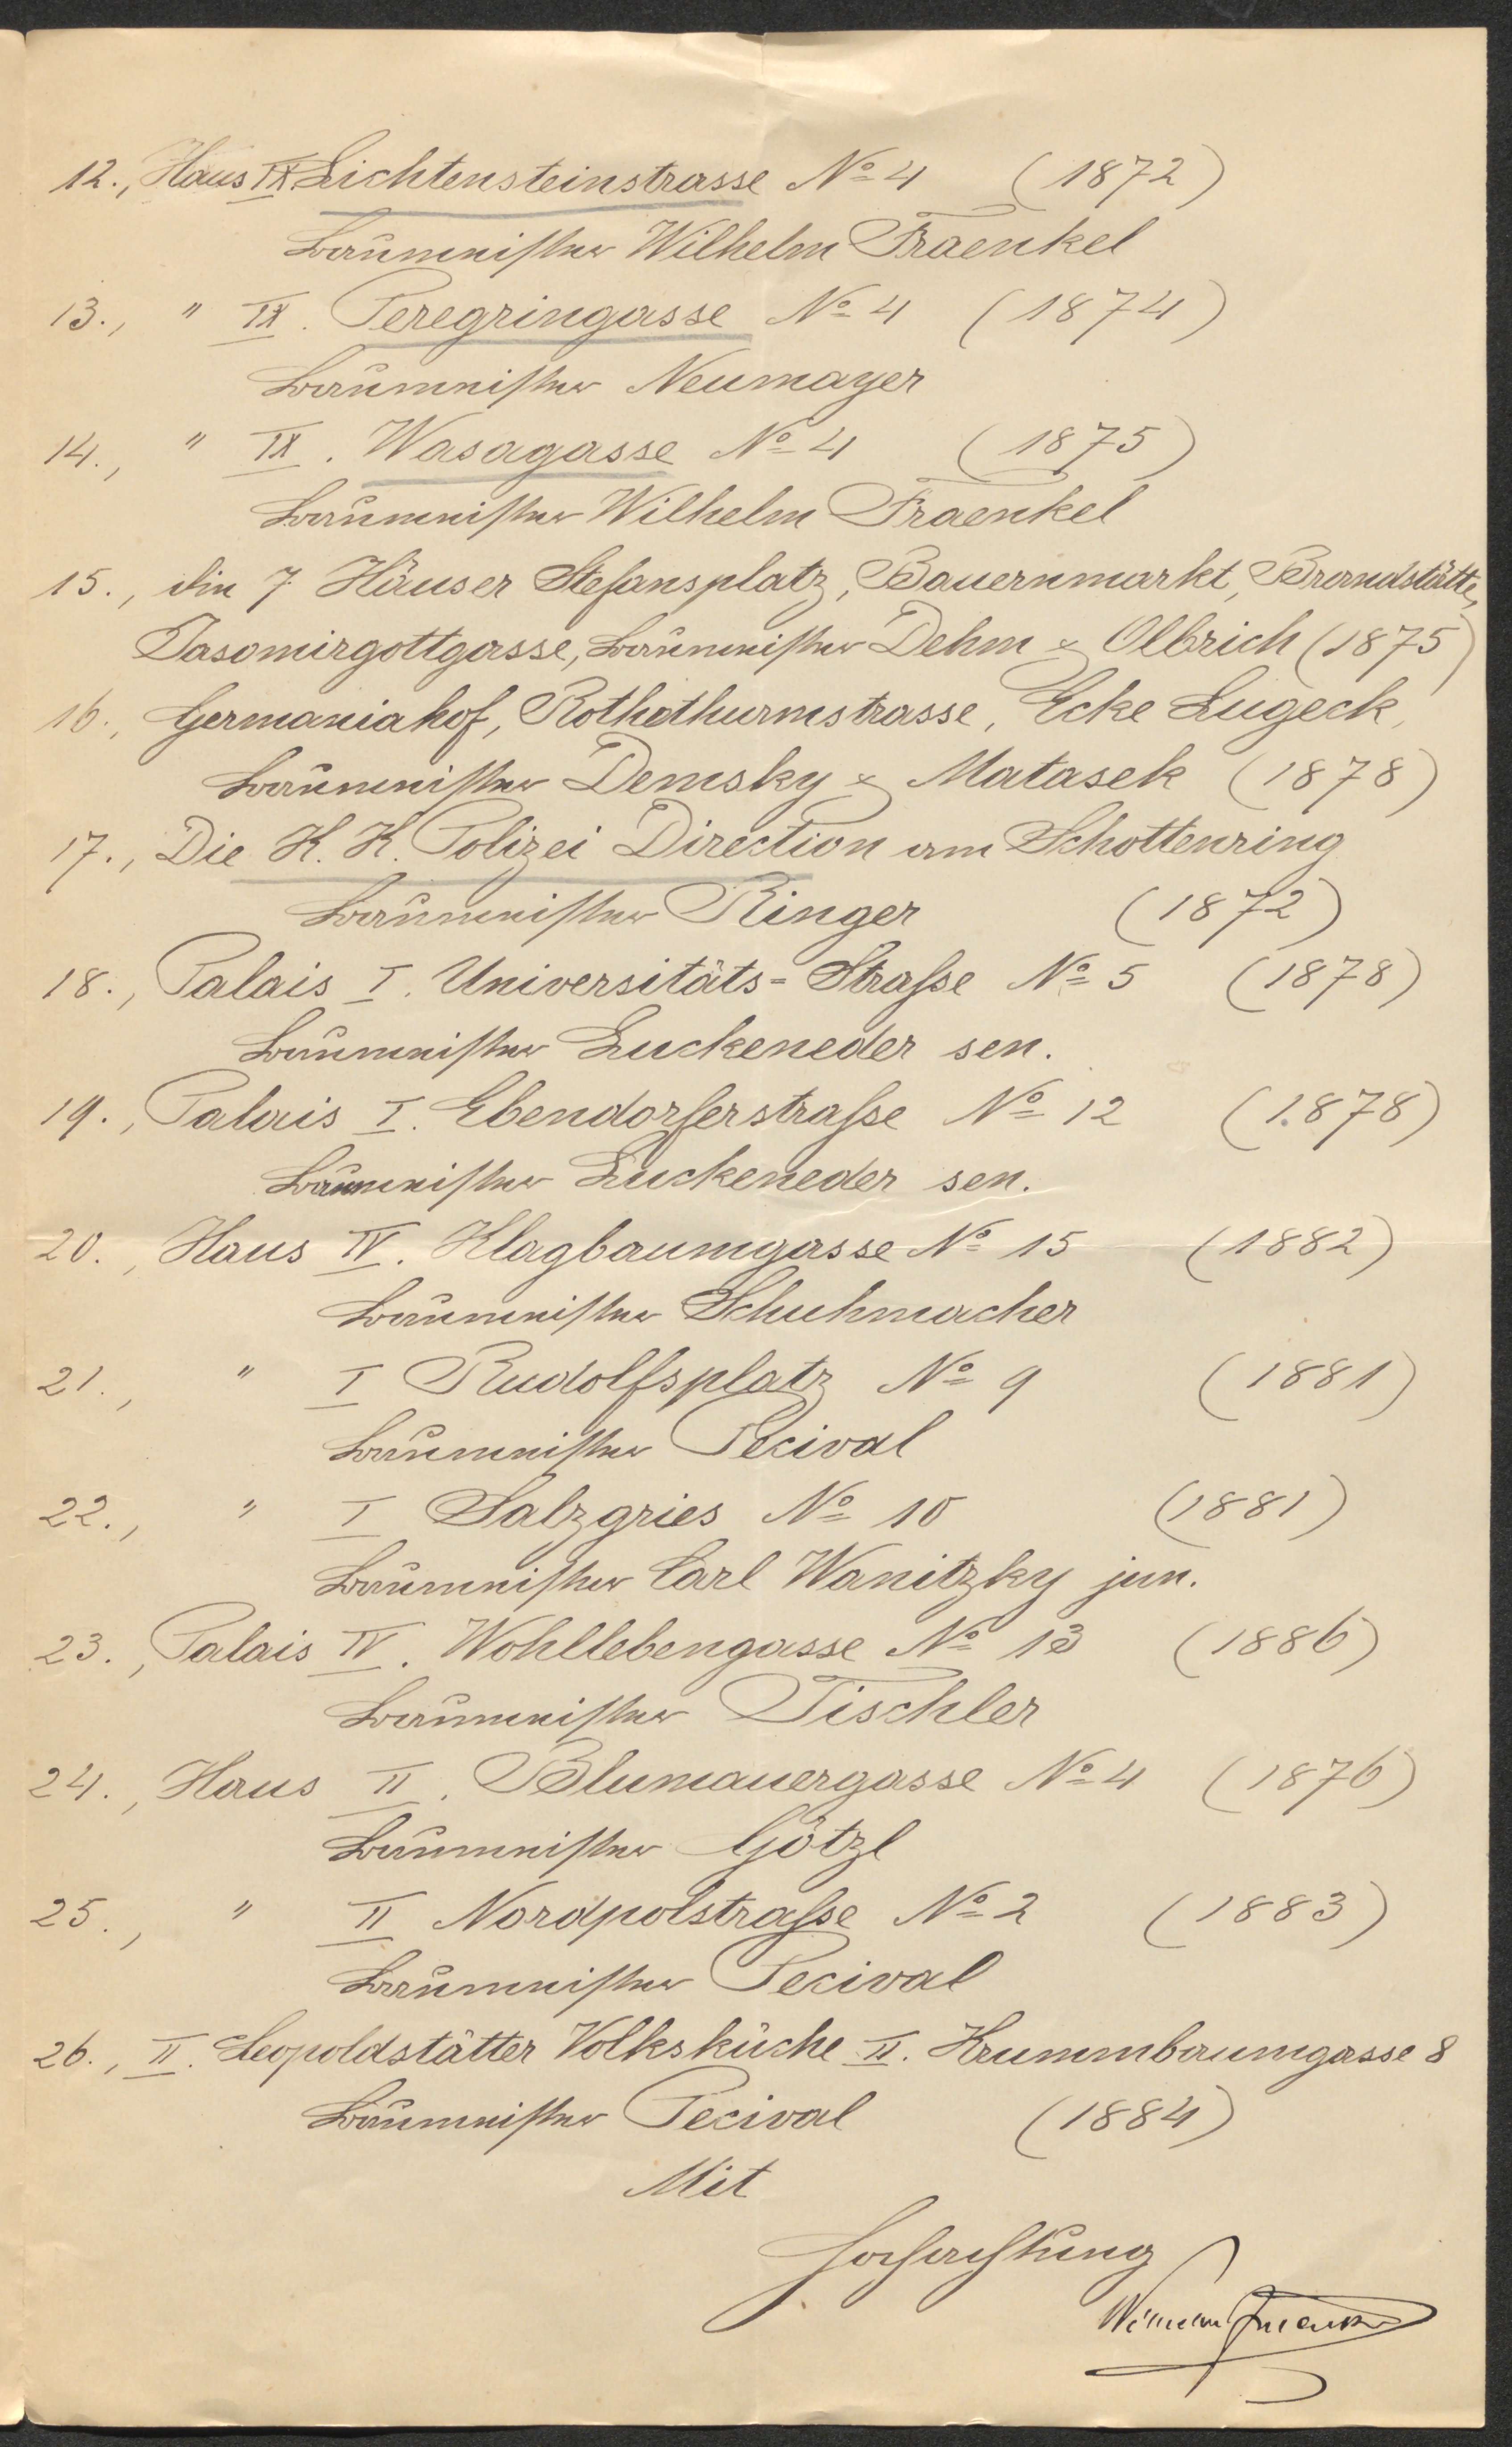 12., Haus IX Lichtensteinstrasse № 4 (1872)
Baumeister Wilhelm Fraenkel
13., " IX. Peregringasse № 4 (1874)
Baumeister Neumayer
14., " IX. Wasagasse № 4 (1875)
Baumeister Wilhelm Fraenkel
15., die 7 Häuser Stefansplatz, Bauernmarkt, Brandstätte,
Jasomirgottgasse, Baumeister Dehm & Olbrich (1875)
16., Germaniahof, Rothethurmstrasse, Ecke Lugeck,
Baumeister Demsky & Matasek (1878)
17., Die K. K. Polizei Direction am Schottenring
Baumeister Ringer (1872)
18., Palais I. Universitäts-Straſse № 5 (1878)
Baumeister Luckeneder sen.
19., Palais I. Ebendorferstraſse № 12 (1878)
Baumeister Luckeneder sen.
20., Haus IV. Klagbaumgasse № 15 (1882)
Baumeister Schuhmacher
21., " I Rudolfsplatz № 9 (1881)
Baumeister Pecival
22., " I Salzgries № 10 (1881)
Baumeister Carl Wanitzky jun.
23., Palais IV. Wohllebengasse № 13 (1886)
Baumeister Tischler
24., Haus II. Blumauergasse № 4 (1876)
Baumeister Götzl
25., " II Nordpolstraſse № 2 (1883)
Baumeister Pecival
26., II. Leopoldstätter Volksküche II. Krummbaumgasse 8
Baumeister Pecival (1884)
Mit
Hochachtung
Wilhelm Fraenkel